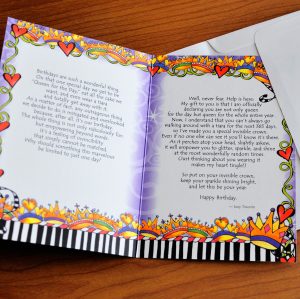 Birthdays are such a wonderful thing.
On that one special day we get to be
"Queen for the Day," eat all the cake we
want, and even wear a tiara
and totally get away with it.
As a matter of fact, birthdays are such a
wonderful, outrageous and exciting thing
because, after all, I'm
The whole birthday
empowering beyond
It's a pity that
Why should such marvelousness
be limited to just one day?
Well, never fear. Help is here.
My gift to you is that I am officially
declaring you are not only queen
for the day but queen for the whole entire year.
Now, I understand that you can't always go
walking around with a tiara for the next 365 days,
so I've made you a special invisible crown.
Even if no one else can see it you'll know it's there.
As it perches atop your head, slightly askew,
it will empower you to glitter, sparkle, and shine
at the most wonderfully random times
(Just thinking about you wearing it
makes my heart tingle!)
So put on your invisible crown,
keep your sparkle shining bright,
and let this be your year.
Happy Birthday.
— Suzy Toronto